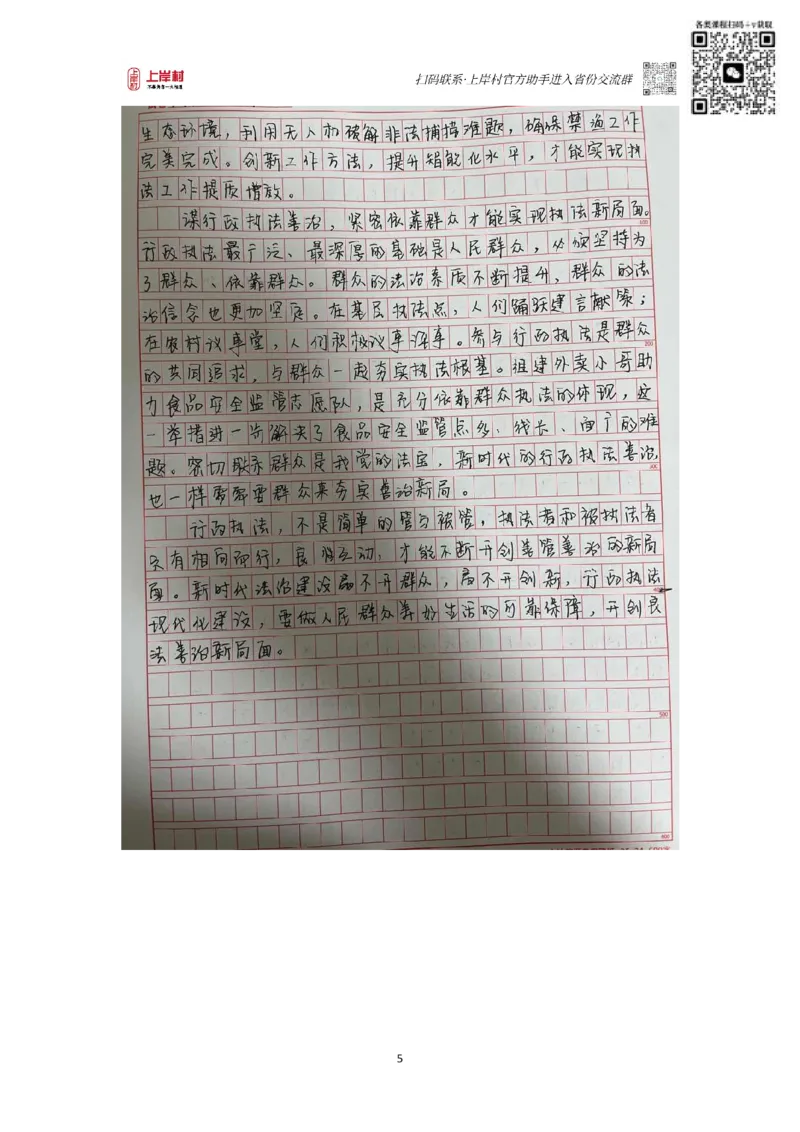 各类课程扫码+v获取
上岸村
扫码联系·上岸村官方助手进入省份交流群
生态环境，利用无人机破解非法捕捞难题，确保禁渔工作
完美完成。创新工作方法，提升智能化水平，才能实现执
法工作提质增效。
谋行政执法善治，紧密依靠群众才能实现执法新局面。
100
行政执法最广泛、最深厚的基础是人民群众，必须坚持为
了群众、依靠群众。群众的法治素质不断提升，群众的法
治信念也更加坚定。在基层执法点，人们踊跃建言献策；
在农村议事堂，人们积极议事评事。参与行政执法是群众
200
的共同追求，与群众一起夯实执法根基。组建外卖小哥助
力食品安全监管志愿队，是充分依靠群众执法的体现，这
一举措进一步解决了食品安全监管点多、线长、面广的难
题。密切联系群众是我党的法宝，新时代的行政执法善治，
300
也一样需要群众来夯实善治新局。
行政执法，不是简单的管与被管，执法者和被执法者
只有相向而行，良性互动，才能不断开创善管善治的新局
面。新时代法治建设离不开群众，离不开创新，行政执法
400
现代化建设，要做人民群众美好生活的可靠保障，开创良
法善治新局面。
500
600
5